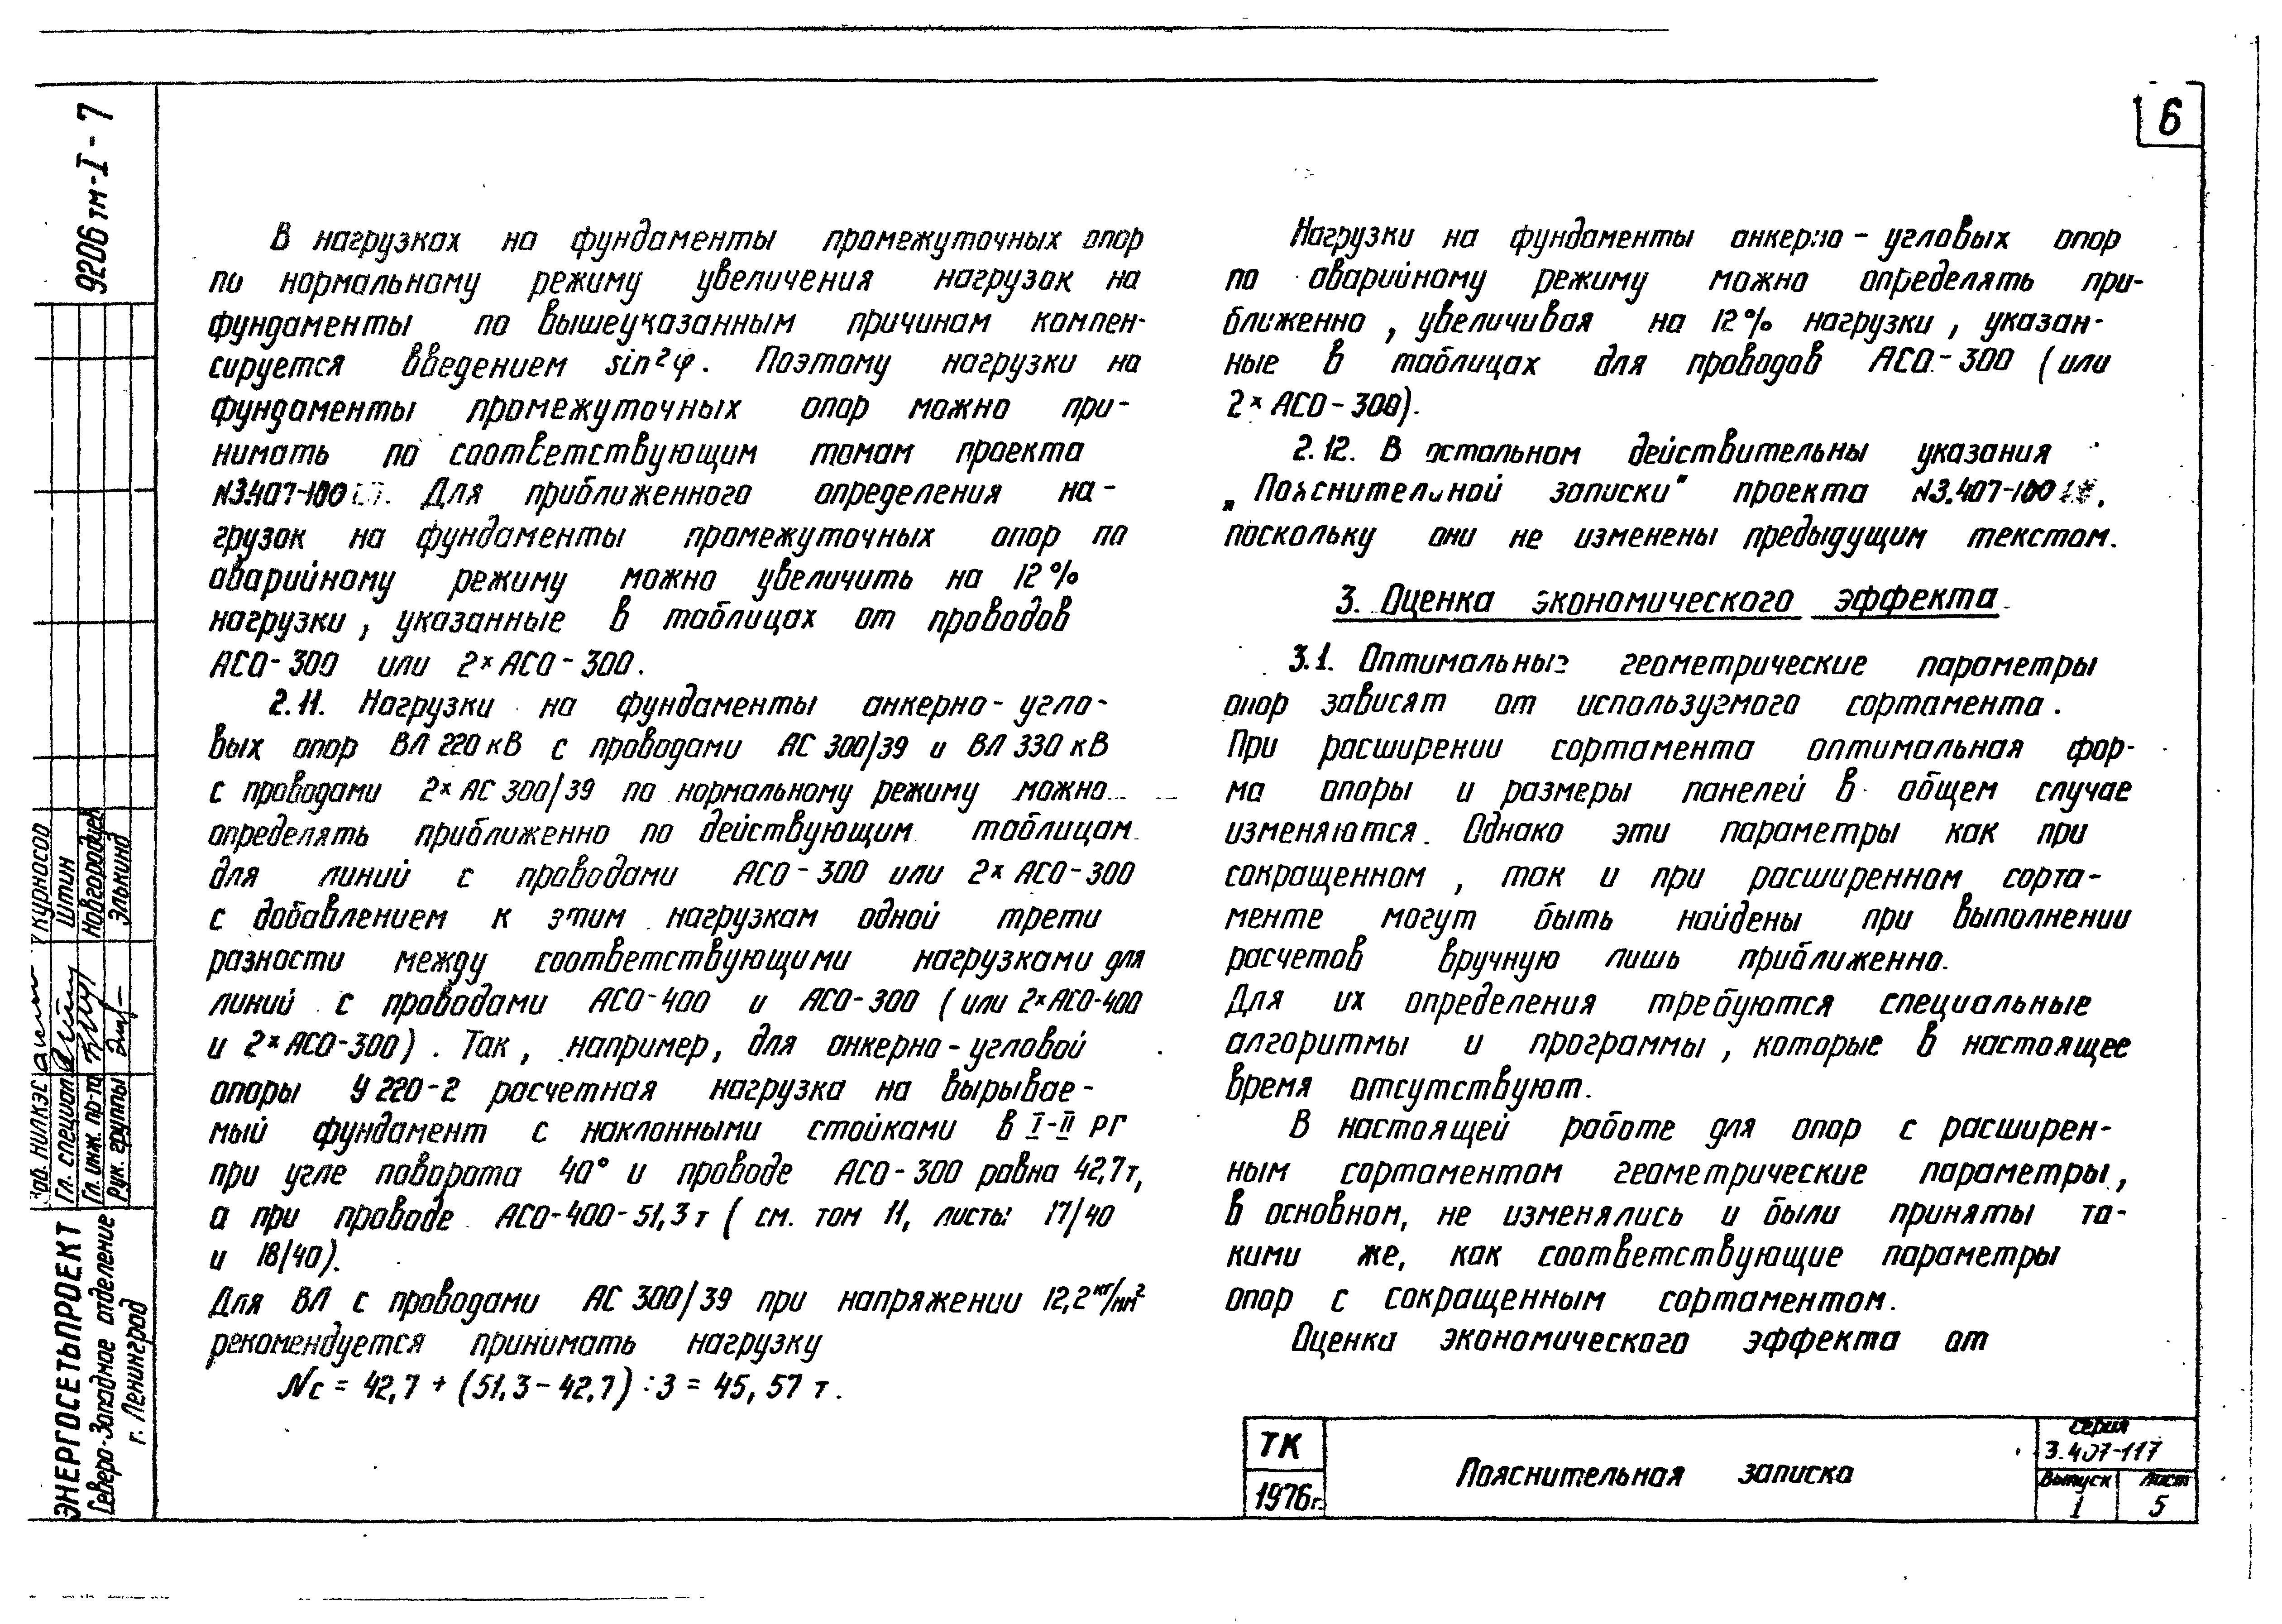 6
9206 тм-I-7
В нагрузках на фундаменты промежуточных опор
по нормальному режиму увеличения нагрузок на
фундаменты по вышеуказанным причинам компен-
сируется введением sin²φ. Поэтому нагрузки на
фундаменты промежуточных опор можно при-
нимать по соответствующим томам проекта
N3.407-100. Для приближенного определения на-
грузок на фундаменты промежуточных опор по
аварийному режиму можно увеличить на 12%
нагрузки, указанные в таблицах от проводов
АСО-300 или 2×АСО-300.
2.11. Нагрузки на фундаменты анкерно-угло-
вых опор ВЛ 220 кВ с проводами АС 300/39 и ВЛ 330 кВ
с проводами 2×АС 300/39 по нормальному режиму можно
определять приближенно по действующим таблицам
для линий с проводами АСО-300 или 2×АСО-300
с добавлением к этим нагрузкам одной трети
разности между соответствующими нагрузками для
линий с проводами АСО-400 и АСО-300 (или 2×АСО-400
и 2×АСО-300). Так, например, для анкерно-угловой
опоры У 220-2 расчетная нагрузка на вырывае-
мый фундамент с наклонными стойками в I-II РГ
при угле поворота 40° и проводе АСО-300 равна 42,7т,
а при проводе АСО-400-51,3т (см. том 11, листы 17/40
и 18/40).
Для ВЛ с проводами АС 300/39 при напряжении 12,2 кг/мм²
рекомендуется принимать нагрузку
Nc = 42,7 + (51,3-42,7) : 3 = 45,57 т.
Нагрузки на фундаменты анкерно-угловых опор
по аварийному режиму можно определять при-
ближенно, увеличивая на 12% нагрузки, указан-
ные в таблицах для проводов АСО-300 (или
2×АСО-300).
2.12. В остальном действительны указания
„Пояснительной записки" проекта N3.407-100,
поскольку они не изменены предыдущим текстом.
3. Оценка экономического эффекта
3.1. Оптимальные геометрические параметры
опор зависят от используемого сортамента.
При расширении сортамента оптимальная фор-
ма опоры и размеры панелей в общем случае
изменяются. Однако эти параметры как при
сокращенном, так и при расширенном сорта-
менте могут быть найдены при выполнении
расчетов вручную лишь приближенно.
Для их определения требуются специальные
алгоритмы и программы, которые в настоящее
время отсутствуют.
В настоящей работе для опор с расширен-
ным сортаментом геометрические параметры,
в основном, не изменялись и были приняты та-
кими же, как соответствующие параметры
опор с сокращенным сортаментом.
Оценка экономического эффекта от
Зав. НИЛКЭС Курносов
Гл. специал. Штин
Гл. инж. пр-та Новгородцев
Рук. группы Элькинд
ЭНЕРГОСЕТЬПРОЕКТ
Северо-Западное отделение
г. Ленинград
ТК
1976г.
Пояснительная записка
Серия
3.407-117
Выпуск
1
Лист
5